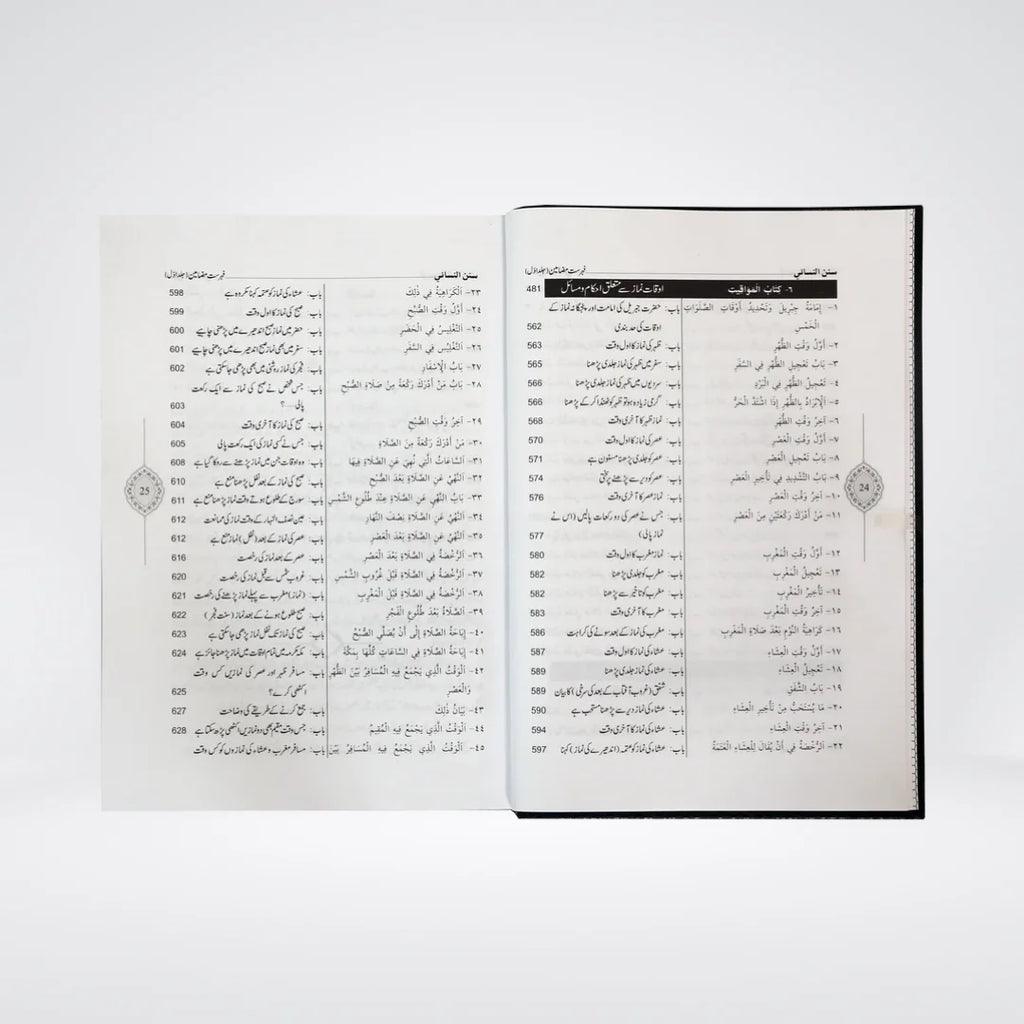 سنن النسائي فہرست مضامین (جلد اوّل)
٦- كتابُ المواقيت اوقات نماز سے متعلق احکام و مسائل 481
١- إِمَامَةُ جِبْرِيلَ وَتَحْدِيدُ أَوْقَاتِ الصَّلَوَاتِ باب: حضرت جبریل کی امامت اور پنجگانہ نماز کے
الْخَمْسِ اوقات کی حد بندی 562
٢- أَوَّلُ وَقْتِ الظُّهْرِ باب: ظہر کی نماز کا اول وقت 563
٣- بَابُ تَعْجِيلِ الظُّهْرِ فِي السَّفَرِ باب: سفر میں ظہر کی نماز جلدی پڑھنا 565
٤- تَعْجِيلُ الظُّهْرِ فِي الْبَرْدِ باب: سردیوں میں ظہر کی نماز جلدی پڑھنا 566
٥- اَلْإِبْرَادُ بِالظُّهْرِ إِذَا اشْتَدَّ الْحَرُّ باب: گرمی زیادہ ہو تو ظہر کو ٹھنڈا کر کے پڑھنا 566
٦- آخِرُ وَقْتِ الظُّهْرِ باب: نماز ظہر کا آخری وقت 568
٧- أَوَّلُ وَقْتِ الْعَصْرِ باب: عصر کی نماز کا اول وقت 570
٨- بَابُ تَعْجِيلِ الْعَصْرِ باب: عصر کو جلدی پڑھنا مسنون ہے 571
٩- بَابُ التَّشْدِيدِ فِي تَأْخِيرِ الْعَصْرِ باب: عصر کو دیر سے پڑھنے پر سختی 574
١٠- آخِرُ وَقْتِ الْعَصْرِ باب: نماز عصر کا آخری وقت 576
١١- مَنْ أَدْرَكَ رَكْعَتَيْنِ مِنَ الْعَصْرِ باب: جس نے عصر کی دو رکعات پالیں (اس نے
نماز پالی) 577
١٢- أَوَّلُ وَقْتِ الْمَغْرِبِ باب: نماز مغرب کا اول وقت 580
١٣- تَعْجِيلُ الْمَغْرِبِ باب: مغرب کو جلدی پڑھنا 582
١٤- تَأْخِيرُ الْمَغْرِبِ باب: مغرب کو تاخیر سے پڑھنا 582
١٥- آخِرُ وَقْتِ الْمَغْرِبِ باب: مغرب کا آخری وقت 583
١٦- كَرَاهِيَةُ النَّوْمِ بَعْدَ صَلَاةِ الْمَغْرِبِ باب: مغرب کی نماز کے بعد سونے کی کراہت 586
١٧- أَوَّلُ وَقْتِ الْعِشَاءِ باب: عشاء کی نماز کا اول وقت 587
١٨- تَعْجِيلُ الْعِشَاءِ باب: عشاء کی نماز جلدی پڑھنا 589
١٩- بَابُ الشَّفَقِ باب: شفق (غروب آفتاب کے بعد کی سرخی) کا بیان 589
٢٠- مَا يُسْتَحَبُّ مِنْ تَأْخِيرِ الْعِشَاءِ باب: عشاء کی نماز دیر سے پڑھنا مستحب ہے 590
٢١- آخِرُ وَقْتِ الْعِشَاءِ باب: عشاء کی نماز کا آخری وقت 594
٢٢- اَلرُّخْصَةُ فِي أَنْ يُقَالَ لِلْعِشَاءِ الْعَتَمَةُ باب: عشاء کی نماز کو عتمہ (اندھیرے کی نماز) کہنا 597
24
سنن النسائي فہرست مضامین (جلد اوّل)
٢٣- اَلْكَرَاهِيَةُ فِي ذٰلِكَ باب: عشاء کی نماز کو عتمہ کہنا مکروہ ہے 598
٢٤- أَوَّلُ وَقْتِ الصُّبْحِ باب: صبح کی نماز کا اول وقت 599
٢٥- اَلتَّغْلِيسُ فِي الْحَضَرِ باب: حضر میں نماز صبح اندھیرے میں پڑھنی چاہیے 600
٢٦- اَلتَّغْلِيسُ فِي السَّفَرِ باب: سفر میں بھی نماز صبح اندھیرے میں پڑھنی چاہیے 601
٢٧- بَابُ الْإِسْفَارِ باب: فجر کی نماز روشنی میں بھی پڑھی جا سکتی ہے 602
٢٨- بَابُ مَنْ أَدْرَكَ رَكْعَةً مِنْ صَلَاةِ الصُّبْحِ باب: جس شخص نے صبح کی نماز سے ایک رکعت
پالی.....؟ 603
٢٩- آخِرُ وَقْتِ الصُّبْحِ باب: صبح کی نماز کا آخری وقت 604
٣٠- مَنْ أَدْرَكَ رَكْعَةً مِنَ الصَّلَاةِ باب: جس نے کسی نماز کی ایک رکعت پالی 605
٣١- اَلسَّاعَاتُ الَّتِي نُهِيَ عَنِ الصَّلَاةِ فِيهَا باب: وہ اوقات جن میں نماز پڑھنے سے روکا گیا ہے 608
٣٢- اَلنَّهْيُ عَنِ الصَّلَاةِ بَعْدَ الصُّبْحِ باب: صبح کی نماز کے بعد نفل پڑھنا منع ہے 610
٣٣- بَابُ النَّهْيِ عَنِ الصَّلَاةِ عِنْدَ طُلُوعِ الشَّمْسِ باب: سورج کے طلوع ہوتے وقت نماز پڑھنا منع ہے 611
٣٤- اَلنَّهْيُ عَنِ الصَّلَاةِ نِصْفَ النَّهَارِ باب: عین نصف النہار کے وقت نماز کی ممانعت 612
٣٥- اَلنَّهْيُ عَنِ الصَّلَاةِ بَعْدَ الْعَصْرِ باب: عصر کی نماز کے بعد (نفل) نماز منع ہے 612
٣٦- اَلرُّخْصَةُ فِي الصَّلَاةِ بَعْدَ الْعَصْرِ باب: عصر کے بعد نماز کی رخصت 616
٣٧- اَلرُّخْصَةُ فِي الصَّلَاةِ قَبْلَ غُرُوبِ الشَّمْسِ باب: غروب شمس سے قبل نماز کی رخصت 620
٣٨- اَلرُّخْصَةُ فِي الصَّلَاةِ قَبْلَ الْمَغْرِبِ باب: (نماز) مغرب سے پہلے نماز پڑھنے کی رخصت 621
٣٩- اَلصَّلَاةُ بَعْدَ طُلُوعِ الْفَجْرِ باب: صبح طلوع ہونے کے بعد نماز (سنت فجر) 622
٤٠- إِبَاحَةُ الصَّلَاةِ إِلَى أَنْ يُصَلِّيَ الصُّبْحَ باب: صبح کی نماز تک نفل نماز پڑھی جا سکتی ہے 623
٤١- إِبَاحَةُ الصَّلَاةِ فِي السَّاعَاتِ كُلِّهَا بِمَكَّةَ باب: مکہ مکرمہ میں تمام اوقات میں نماز پڑھنا جائز ہے 624
٤٢- اَلْوَقْتُ الَّذِي يَجْمَعُ فِيهِ الْمُسَافِرُ بَيْنَ الظُّهْرِ باب: مسافر ظہر اور عصر کی نمازیں کس وقت
وَالْعَصْرِ اکٹھی کرے؟ 625
٤٣- بَيَانُ ذٰلِكَ باب: جمع کرنے کے طریقے کی وضاحت 627
٤٤- اَلْوَقْتُ الَّذِي يَجْمَعُ فِيهِ الْمُقِيمُ باب: جس وقت مقیم بھی دو نمازیں اکٹھی پڑھ سکتا ہے 628
٤٥- اَلْوَقْتُ الَّذِي يَجْمَعُ فِيهِ الْمُسَافِرُ بَيْنَ باب: مسافر مغرب و عشاء کی نمازوں کو کس وقت
25